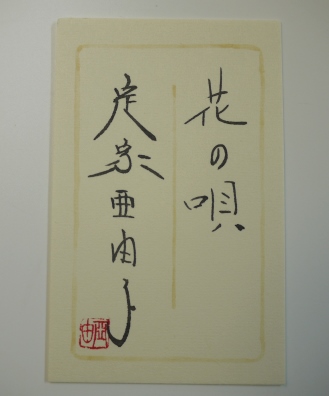 花の唄
定家亜由子